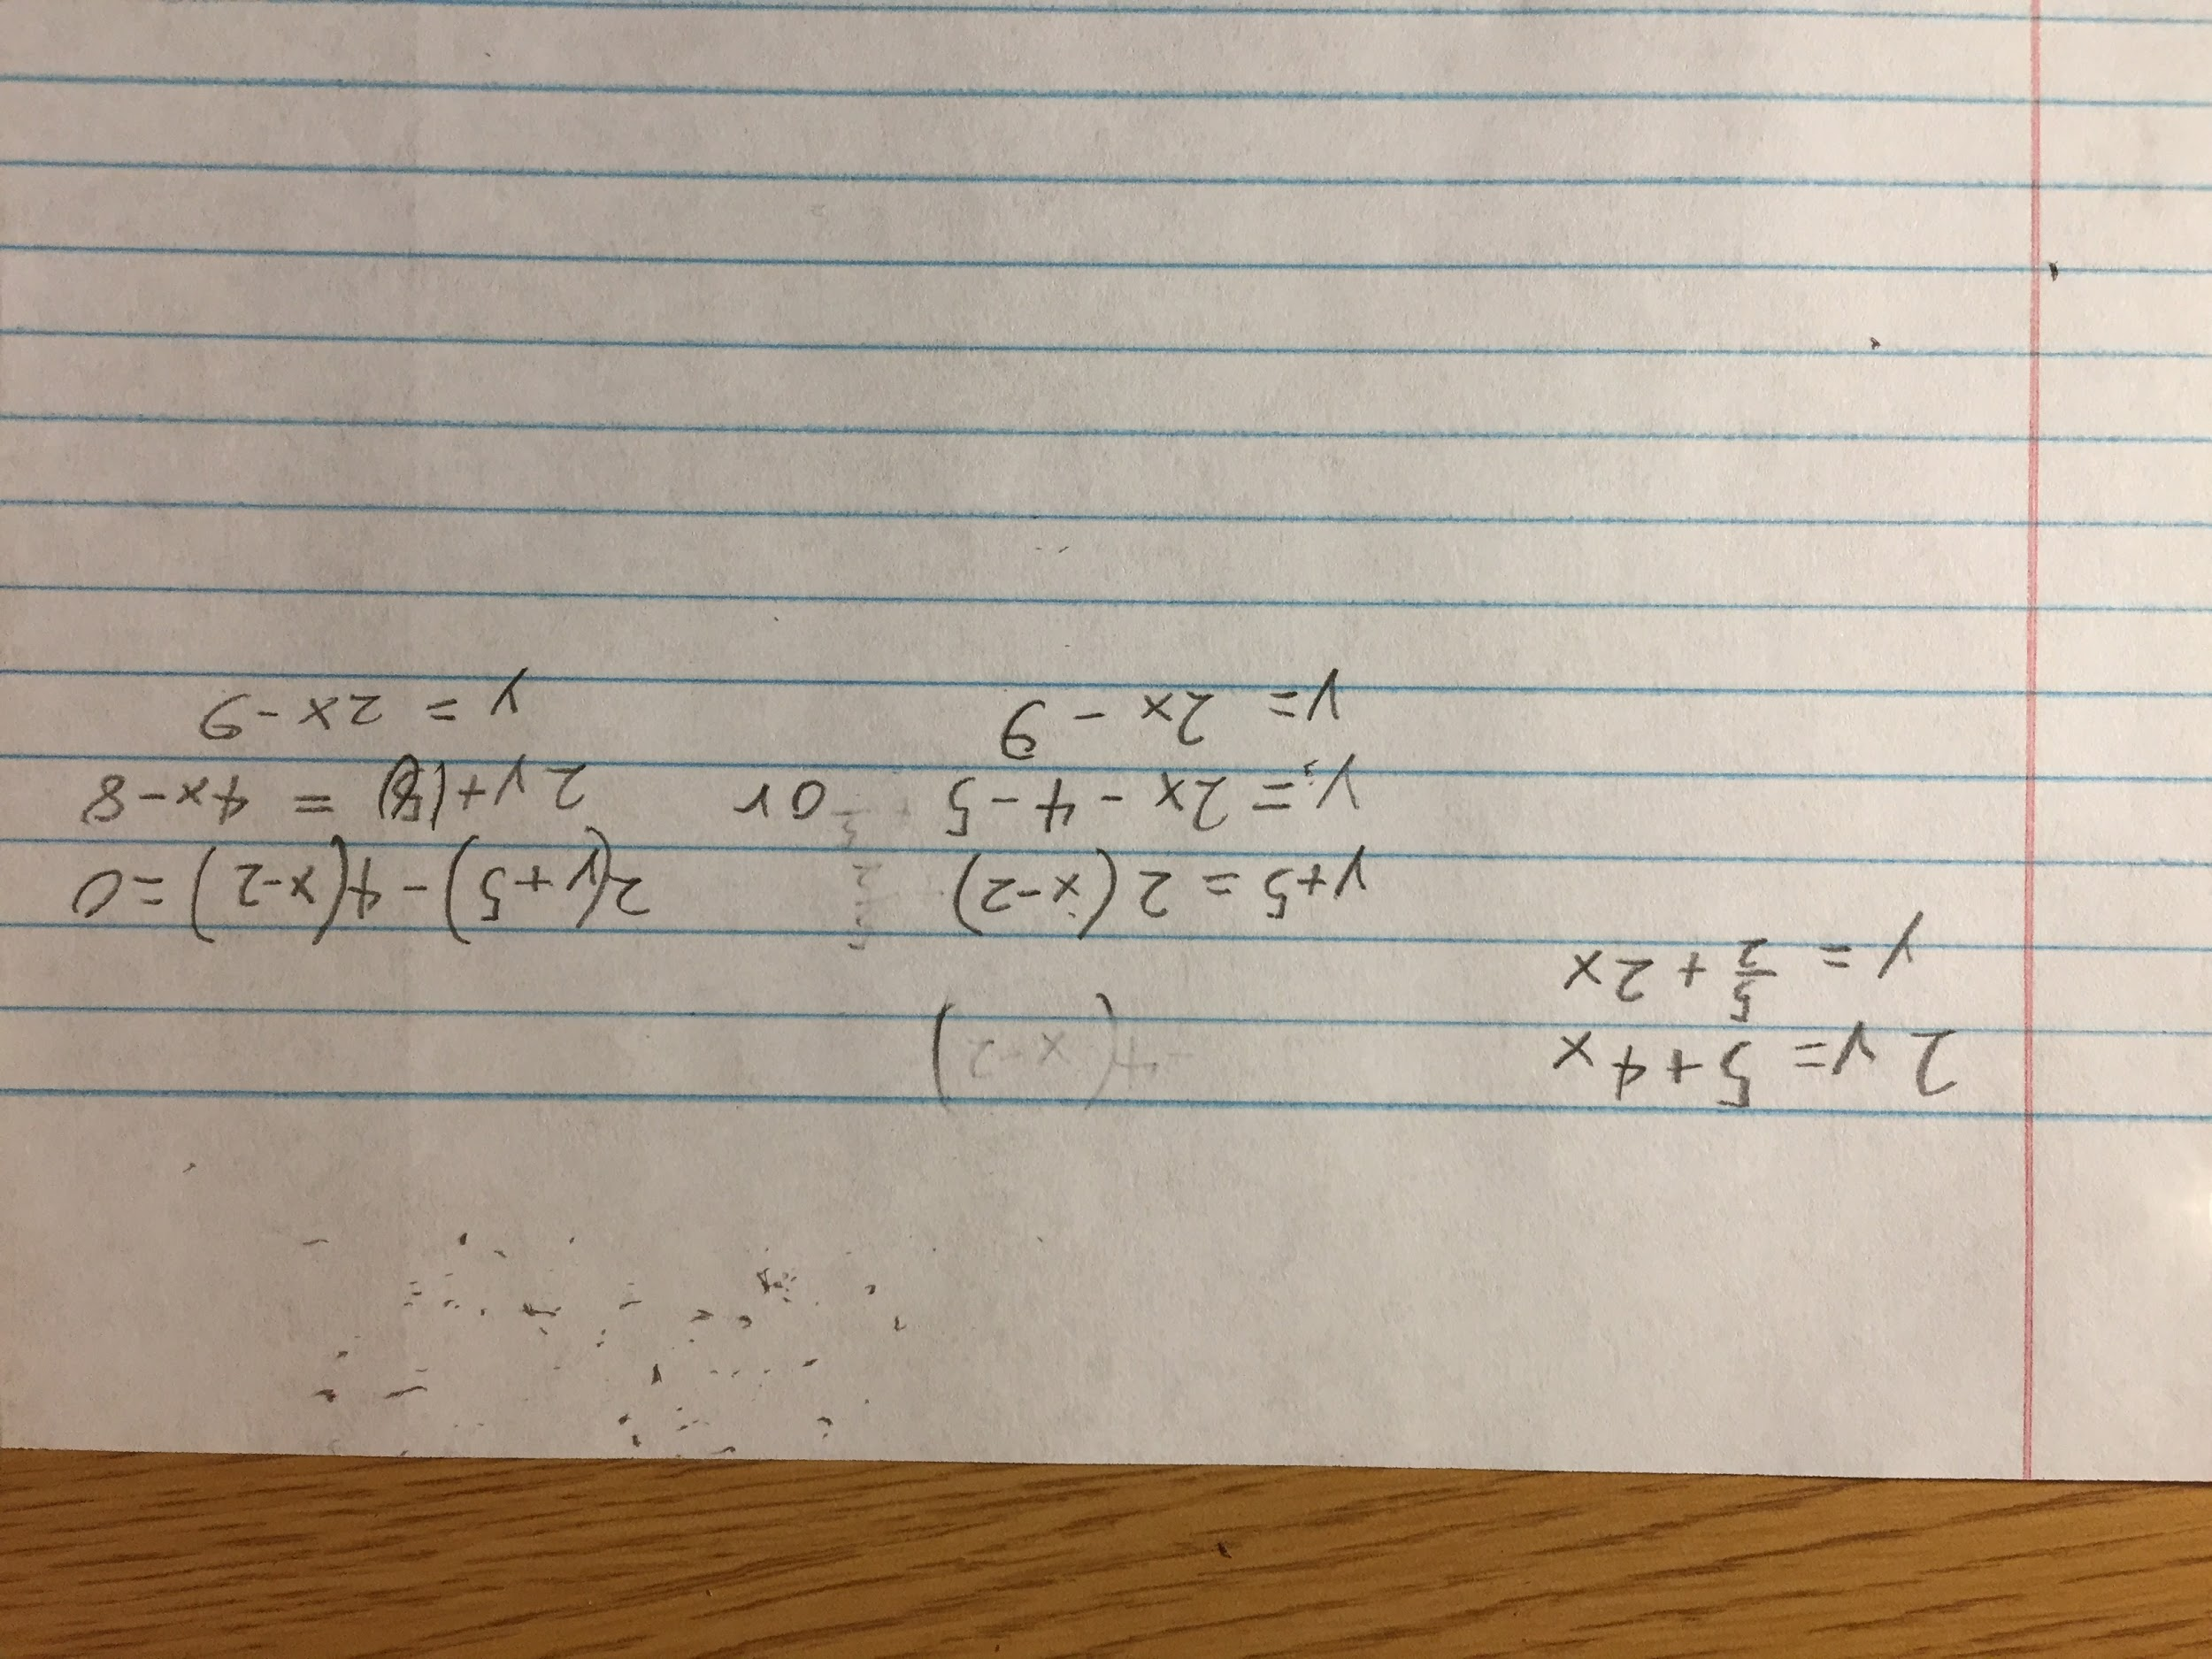 2y = 5+4x
y = 5/2 + 2x
4(x-2)
y+5 = 2(x-2)
y = 2x - 4 - 5
y = 2x - 9
or
2(y+5) - 4(x-2) = 0
= 4x - 8
y = 2x - 9